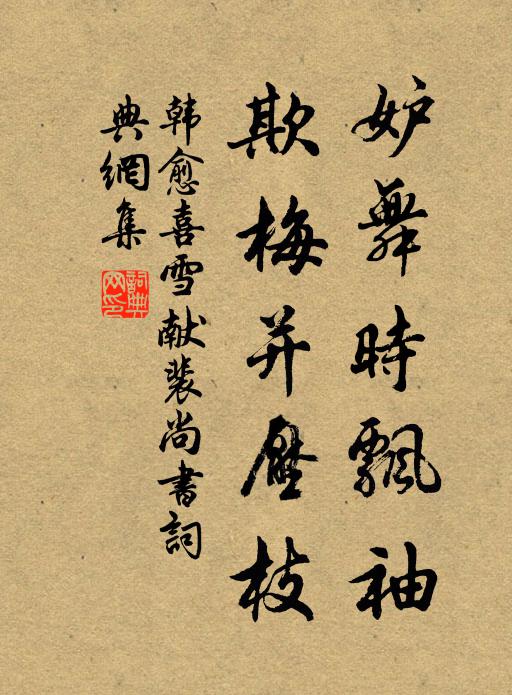 妒舞時飄袖
欺梅并壓枝
韩愈喜雪献裴尚書詞
典網集
詞典
网印